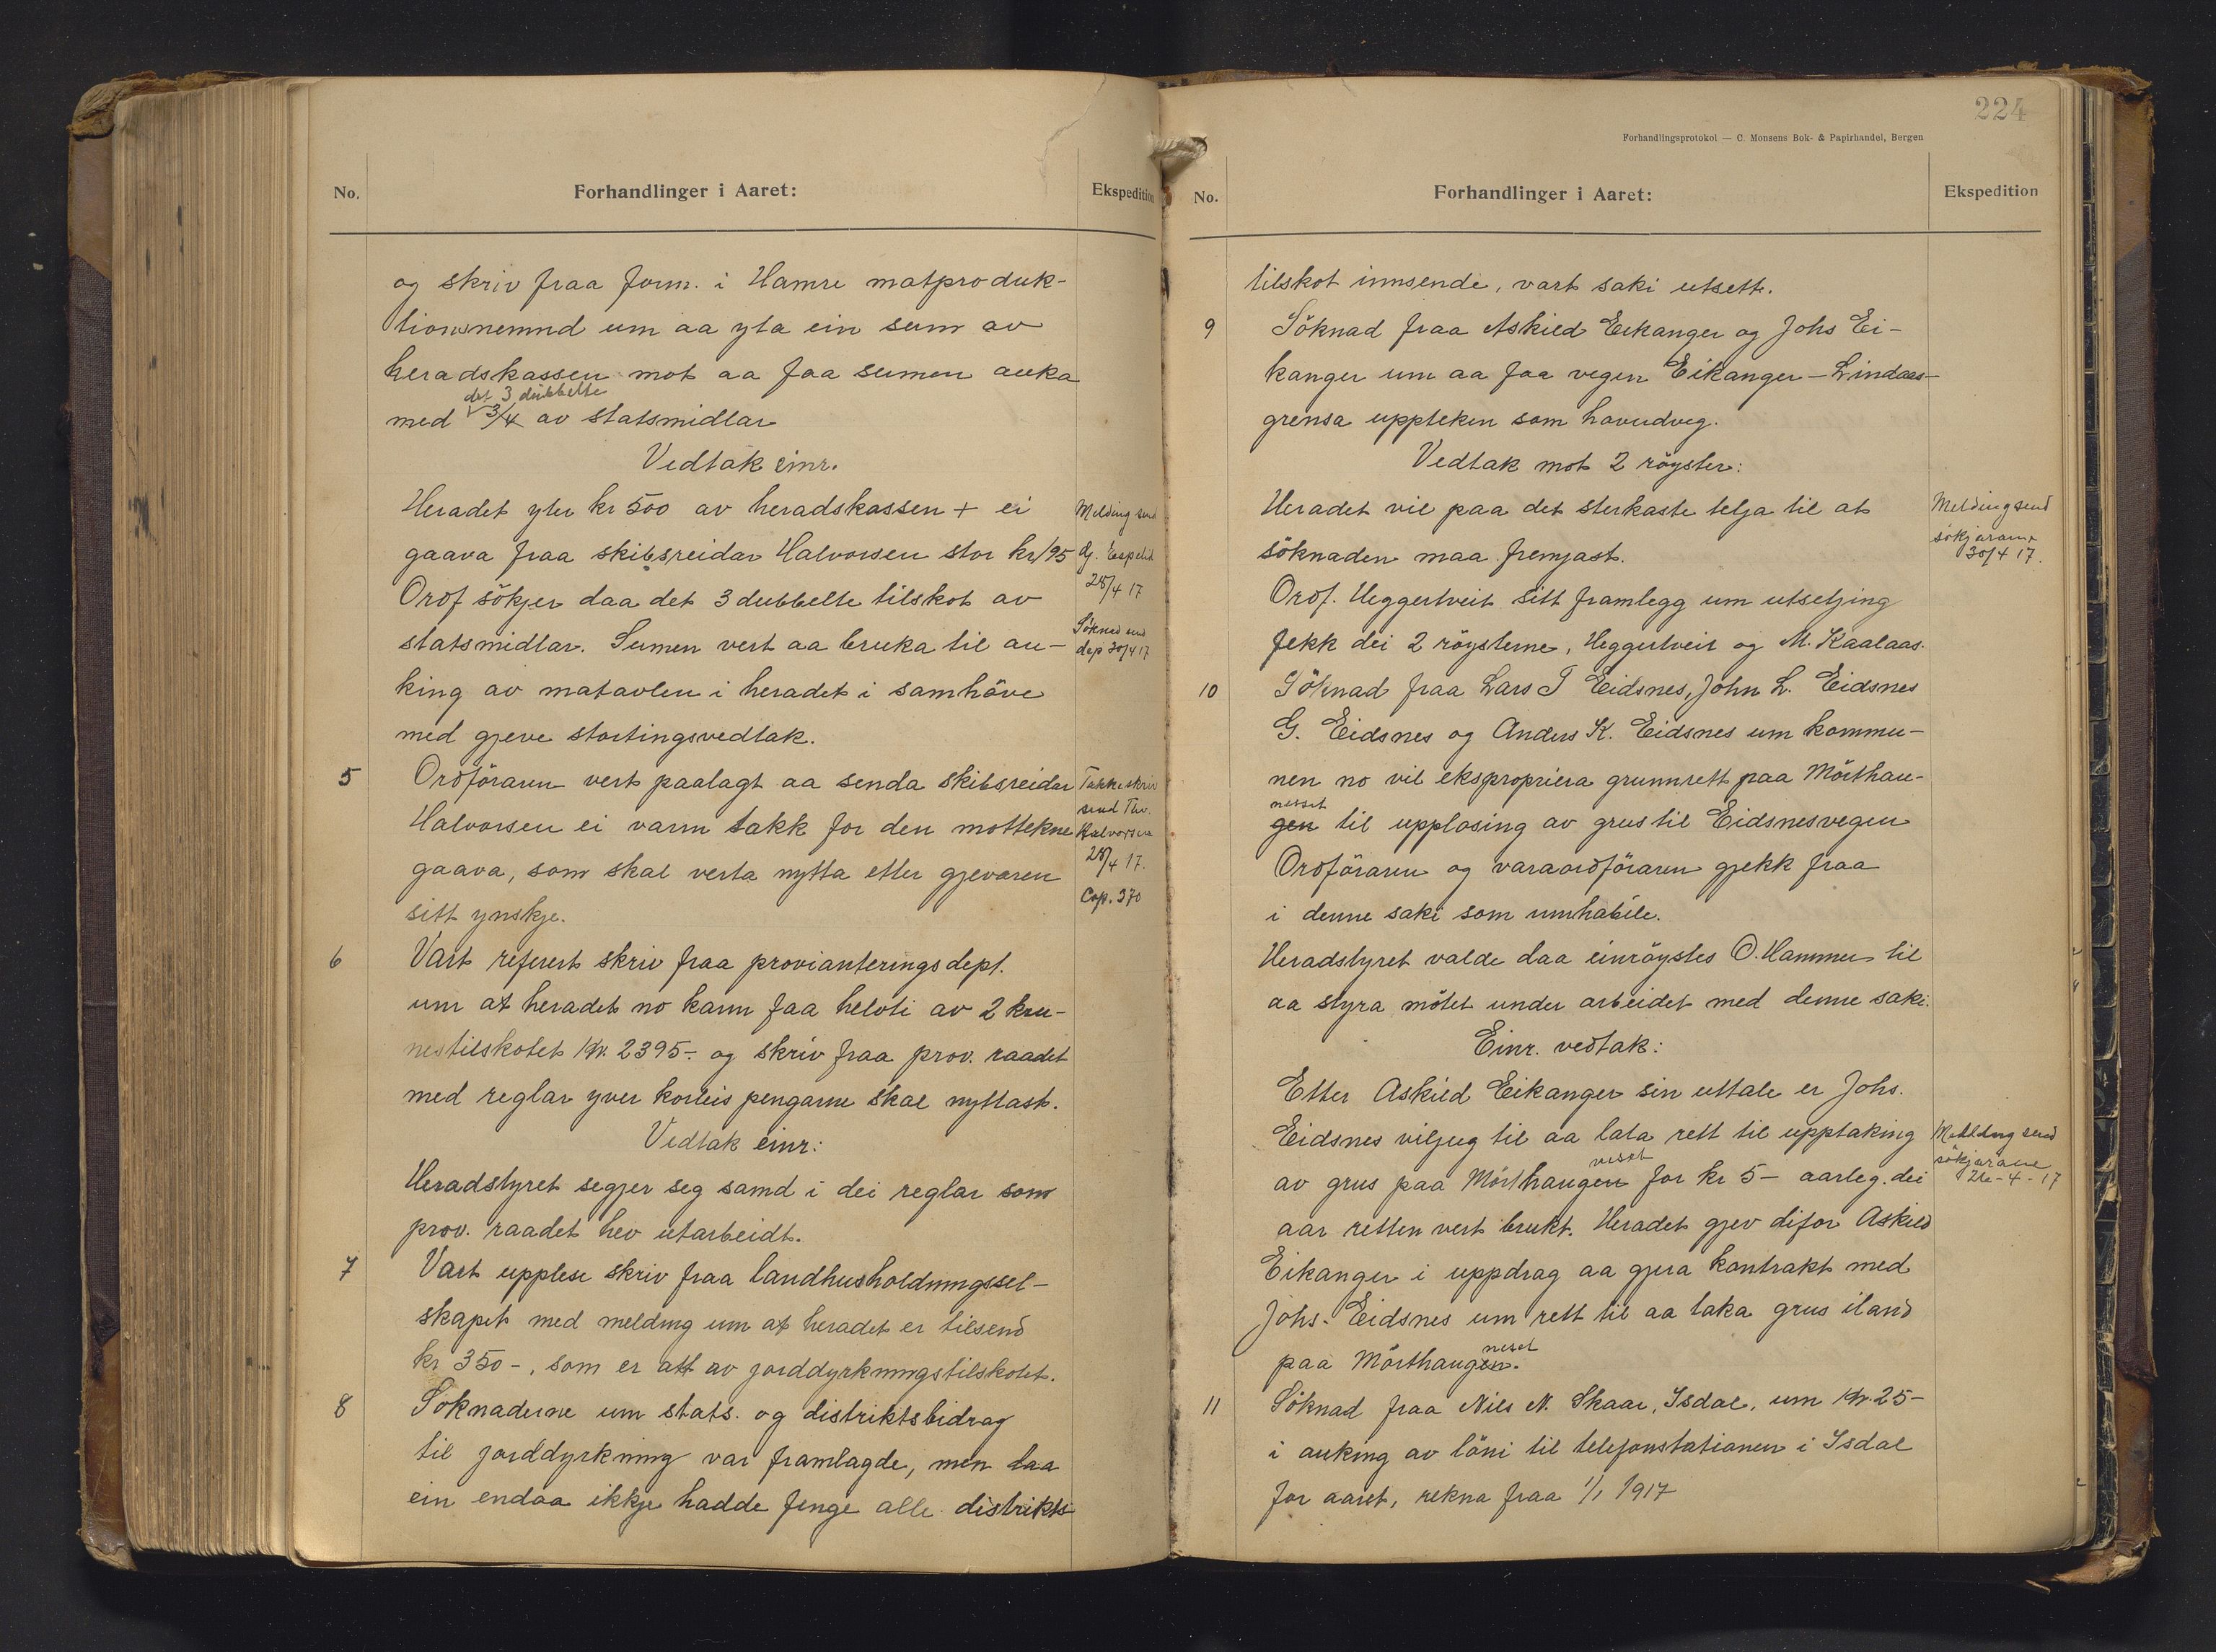 No.
Forhandlinger i Aaret:
Ekspedition
og skriv fraa form. i Hamre matproduk-
tionsnemnd um aa yta ein sum av
heradskassen mot aa faa sumen auka
det 3 dubbelte
med 3/4 av statsmidlar
Vedtak einr.
Heradet yter kr 500 av heradskassen + ei
gaava fraa skibsreidar Halvorsen stor kr 195
Ordf sökjer daa det 3 dubbelte tilskot av
statsmidlar. Sumen vert aa bruka til au-
king av matavlen i heradet i samhöve
med gjeve stortingsvedtak.
Melding send
G. Espelid
28/4 17
Söknad send
dep 30/4 17
5
Ordföraren vert paalagt aa senda skibsreidar
Halvorsen ei varm takk for den mottekne
gaava, som skal verta nytta etter gjevaren
sitt ynskje.
Takkeskriv
send Thv.
Halvorsen
28/4 17.
Cop. 370
6
Vart referert skriv fraa provianteringsdept.
um at heradet no kann faa helvti av 2 kru-
nestilskotet kr. 2395.- og skriv fraa prov. raadet
med reglar yver korleis pengarne skal nyttast.
Vedtak einr:
Heradstyret segjer seg samd i dei reglar som
prov. raadet hev utarbeidt.
7
Vart upplese skriv fraa landhusholdningssel-
skapet med melding um at heradet er tilsend
kr 350-, som er att av jorddyrkningstilskotet.
8
Söknaderne um stats. og distriktsbidrag
til jorddyrkning var framlagde, men daa
ein endaa ikkje hadde fenge alle distrikts
224
Forhandlingsprotokol — C. Monsens Bok- & Papirhandel, Bergen
No.
Forhandlinger i Aaret:
Ekspedition
tilskot innsende, vart saki utsett.
9
Söknad fraa Askild Eikanger og Johs Ei-
kanger um aa faa vegen Eikanger - Lindaas-
grensa uppteken som hovudveg.
Vedtak mot 2 röyster:
Heradet vil paa det sterkaste telja til at
söknaden maa fremjast.
Melding send
sökjarane
30/4 17.
Ordf. Heggertveit sitt framlegg um utsetjing
fekk dei 2 röysterne, Heggertveit og M. Kaalaas.
10
Söknad fraa Lars T Eidsnes, John L. Eidsnes
G. Eidsnes og Anders K. Eidsnes um kommu-
nen no vil ekspropriera grunnrett paa Mörthau-
nesset
gen til upplosing av grus til Eidsnesvegen
Ordföraren og varaordföraren gjekk fraa
i denne saki som umhabile.
Heradstyret valde daa einröystes O. Hammer til
aa styra mötet under arbeidet med denne saki.
Einr. vedtak:
Etter Askild Eikanger sin uttale er Johs.
Eidsnes viljug til aa lata rett til upptaking
neset
av grus paa Mörthaugen for kr 5- aarleg. dei
aar retten vert brukt. Heradet gjev difor Askild
Eikanger i uppdrag aa gjera kontrakt med
Johs. Eidsnes um rett til aa taka grus iland
neset
paa Mörthaugen.
Melding send
sökjarane
26-4-17
11
Söknad fraa Nils N. Skaar, Isdal, um kr. 25-
i auking av löni til telefonstationen i Isdal
for aaret, rekna fraa 1/1 1917